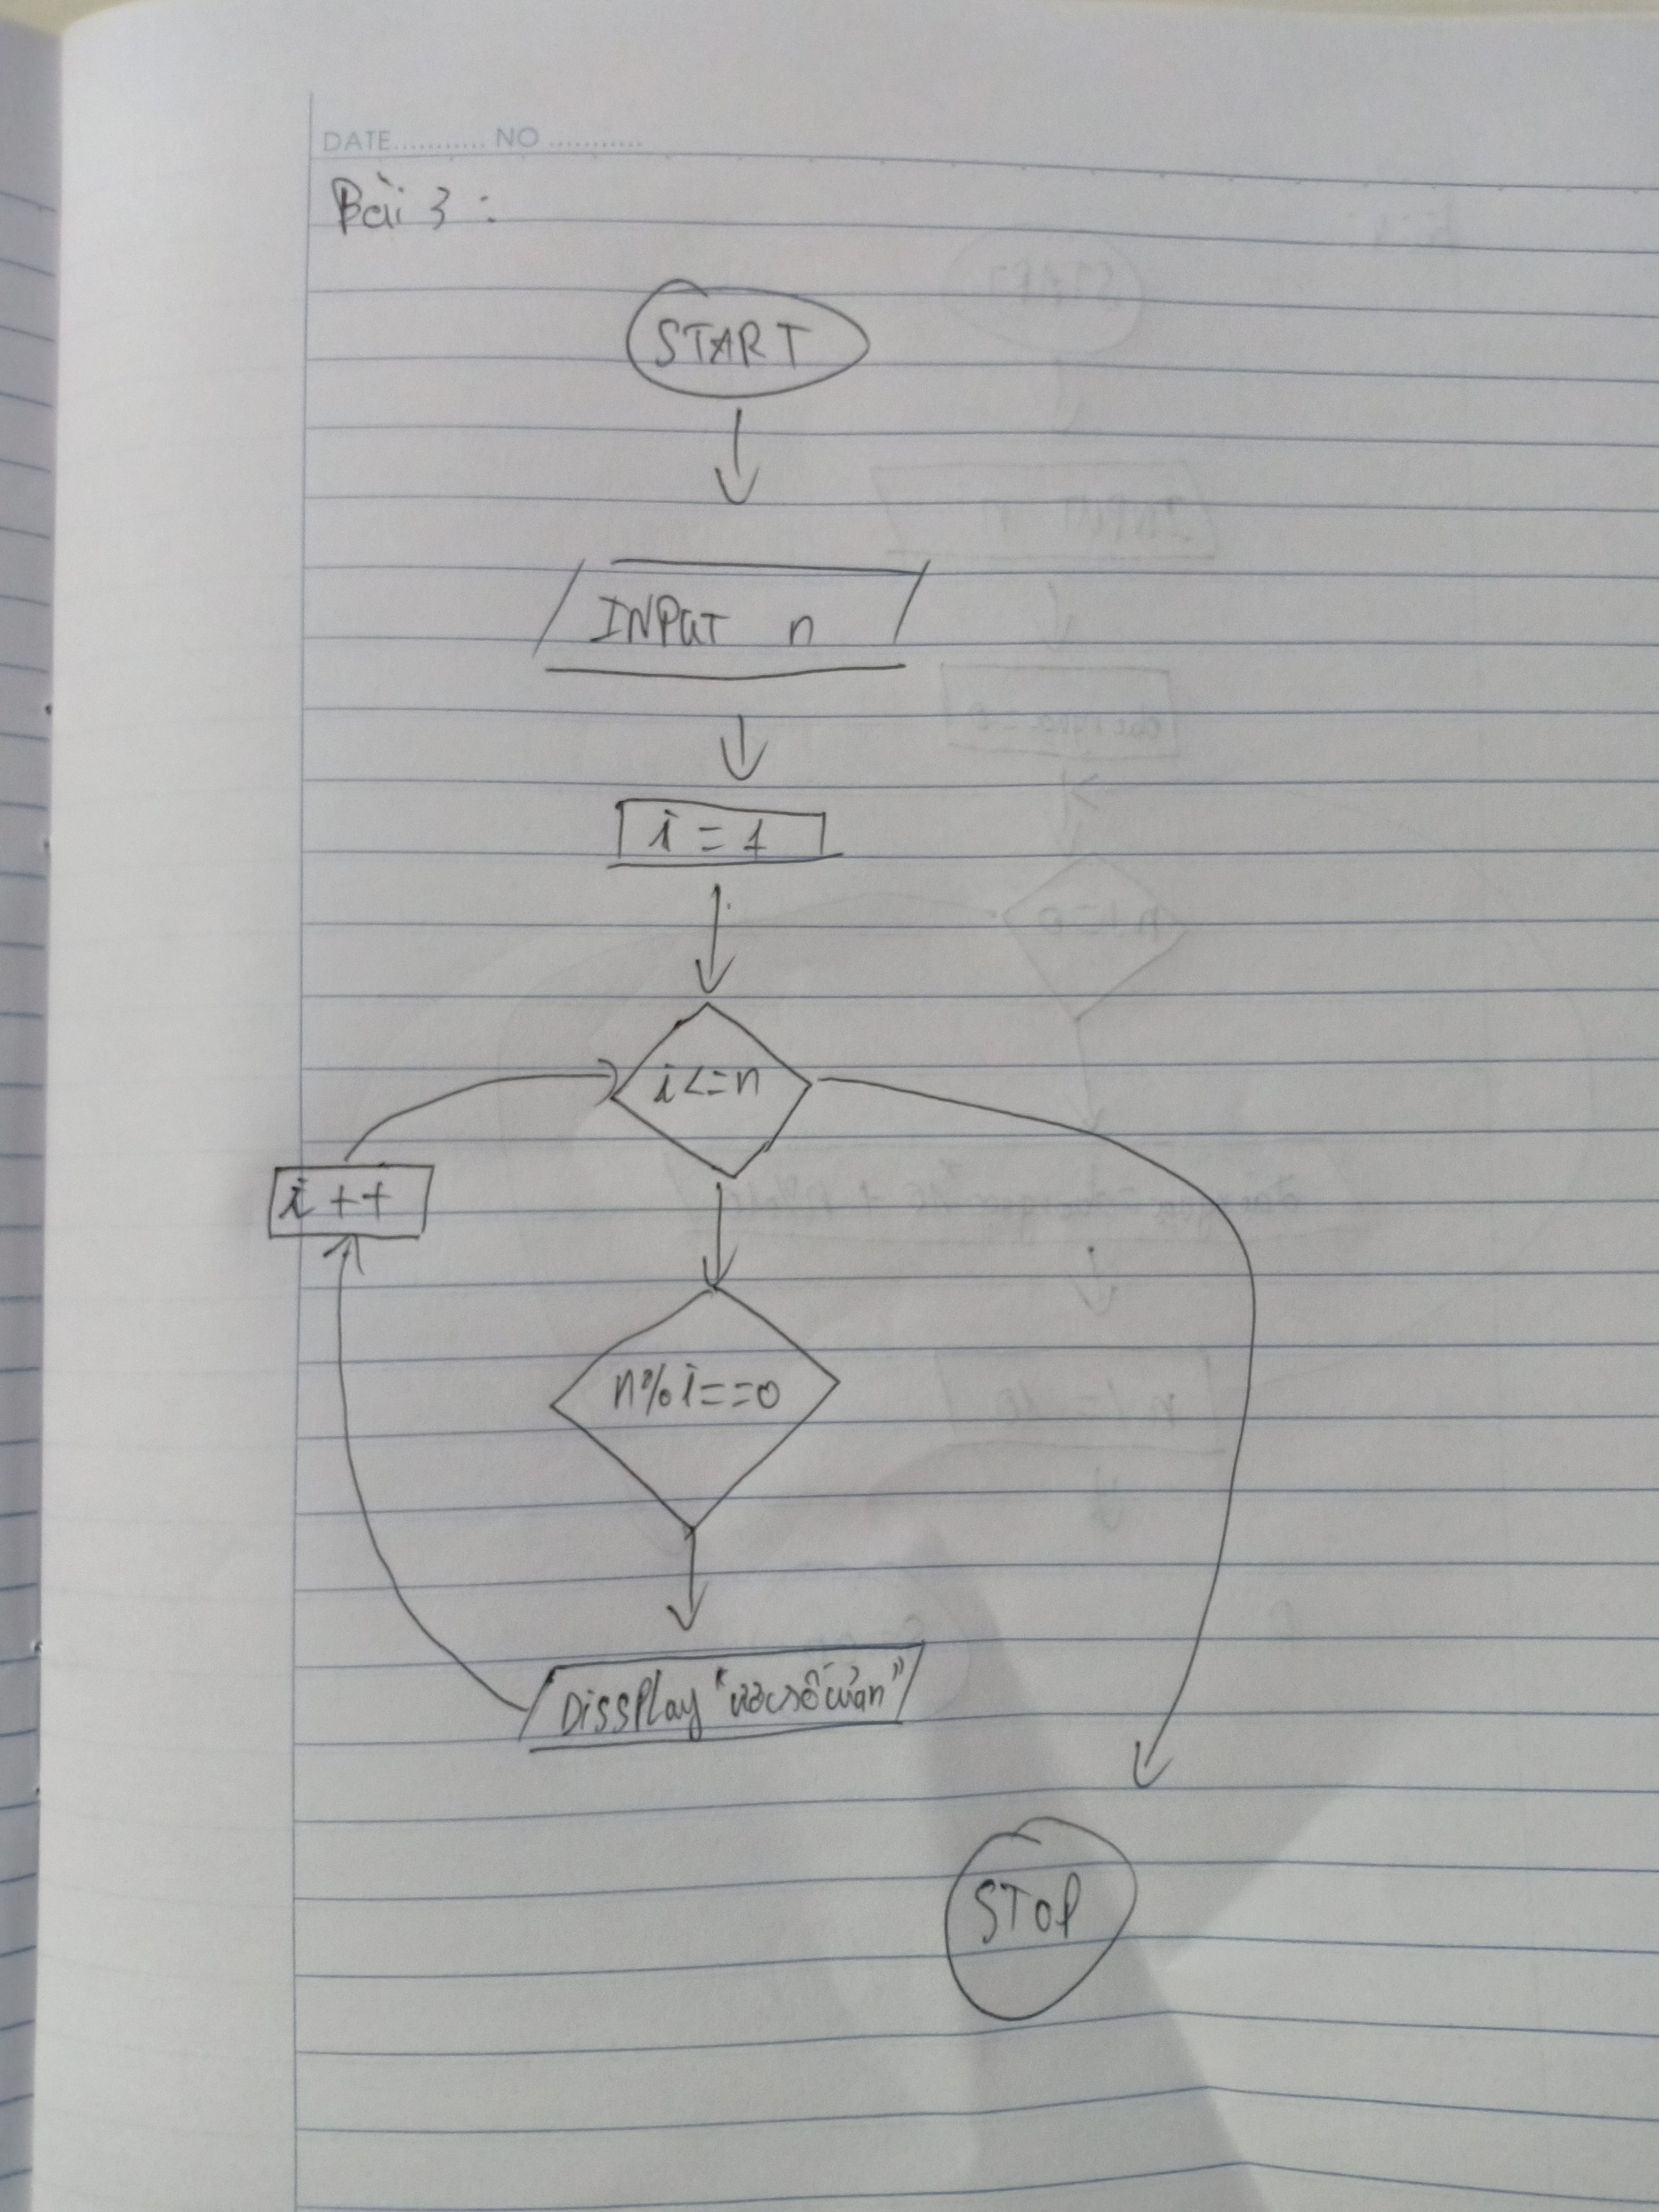 DATE........... NO ...........
Bài 3 :
START
INPUT n
i = 1
i <= n
i++
n%i==0
DissPlay "ước số của n"
STOP